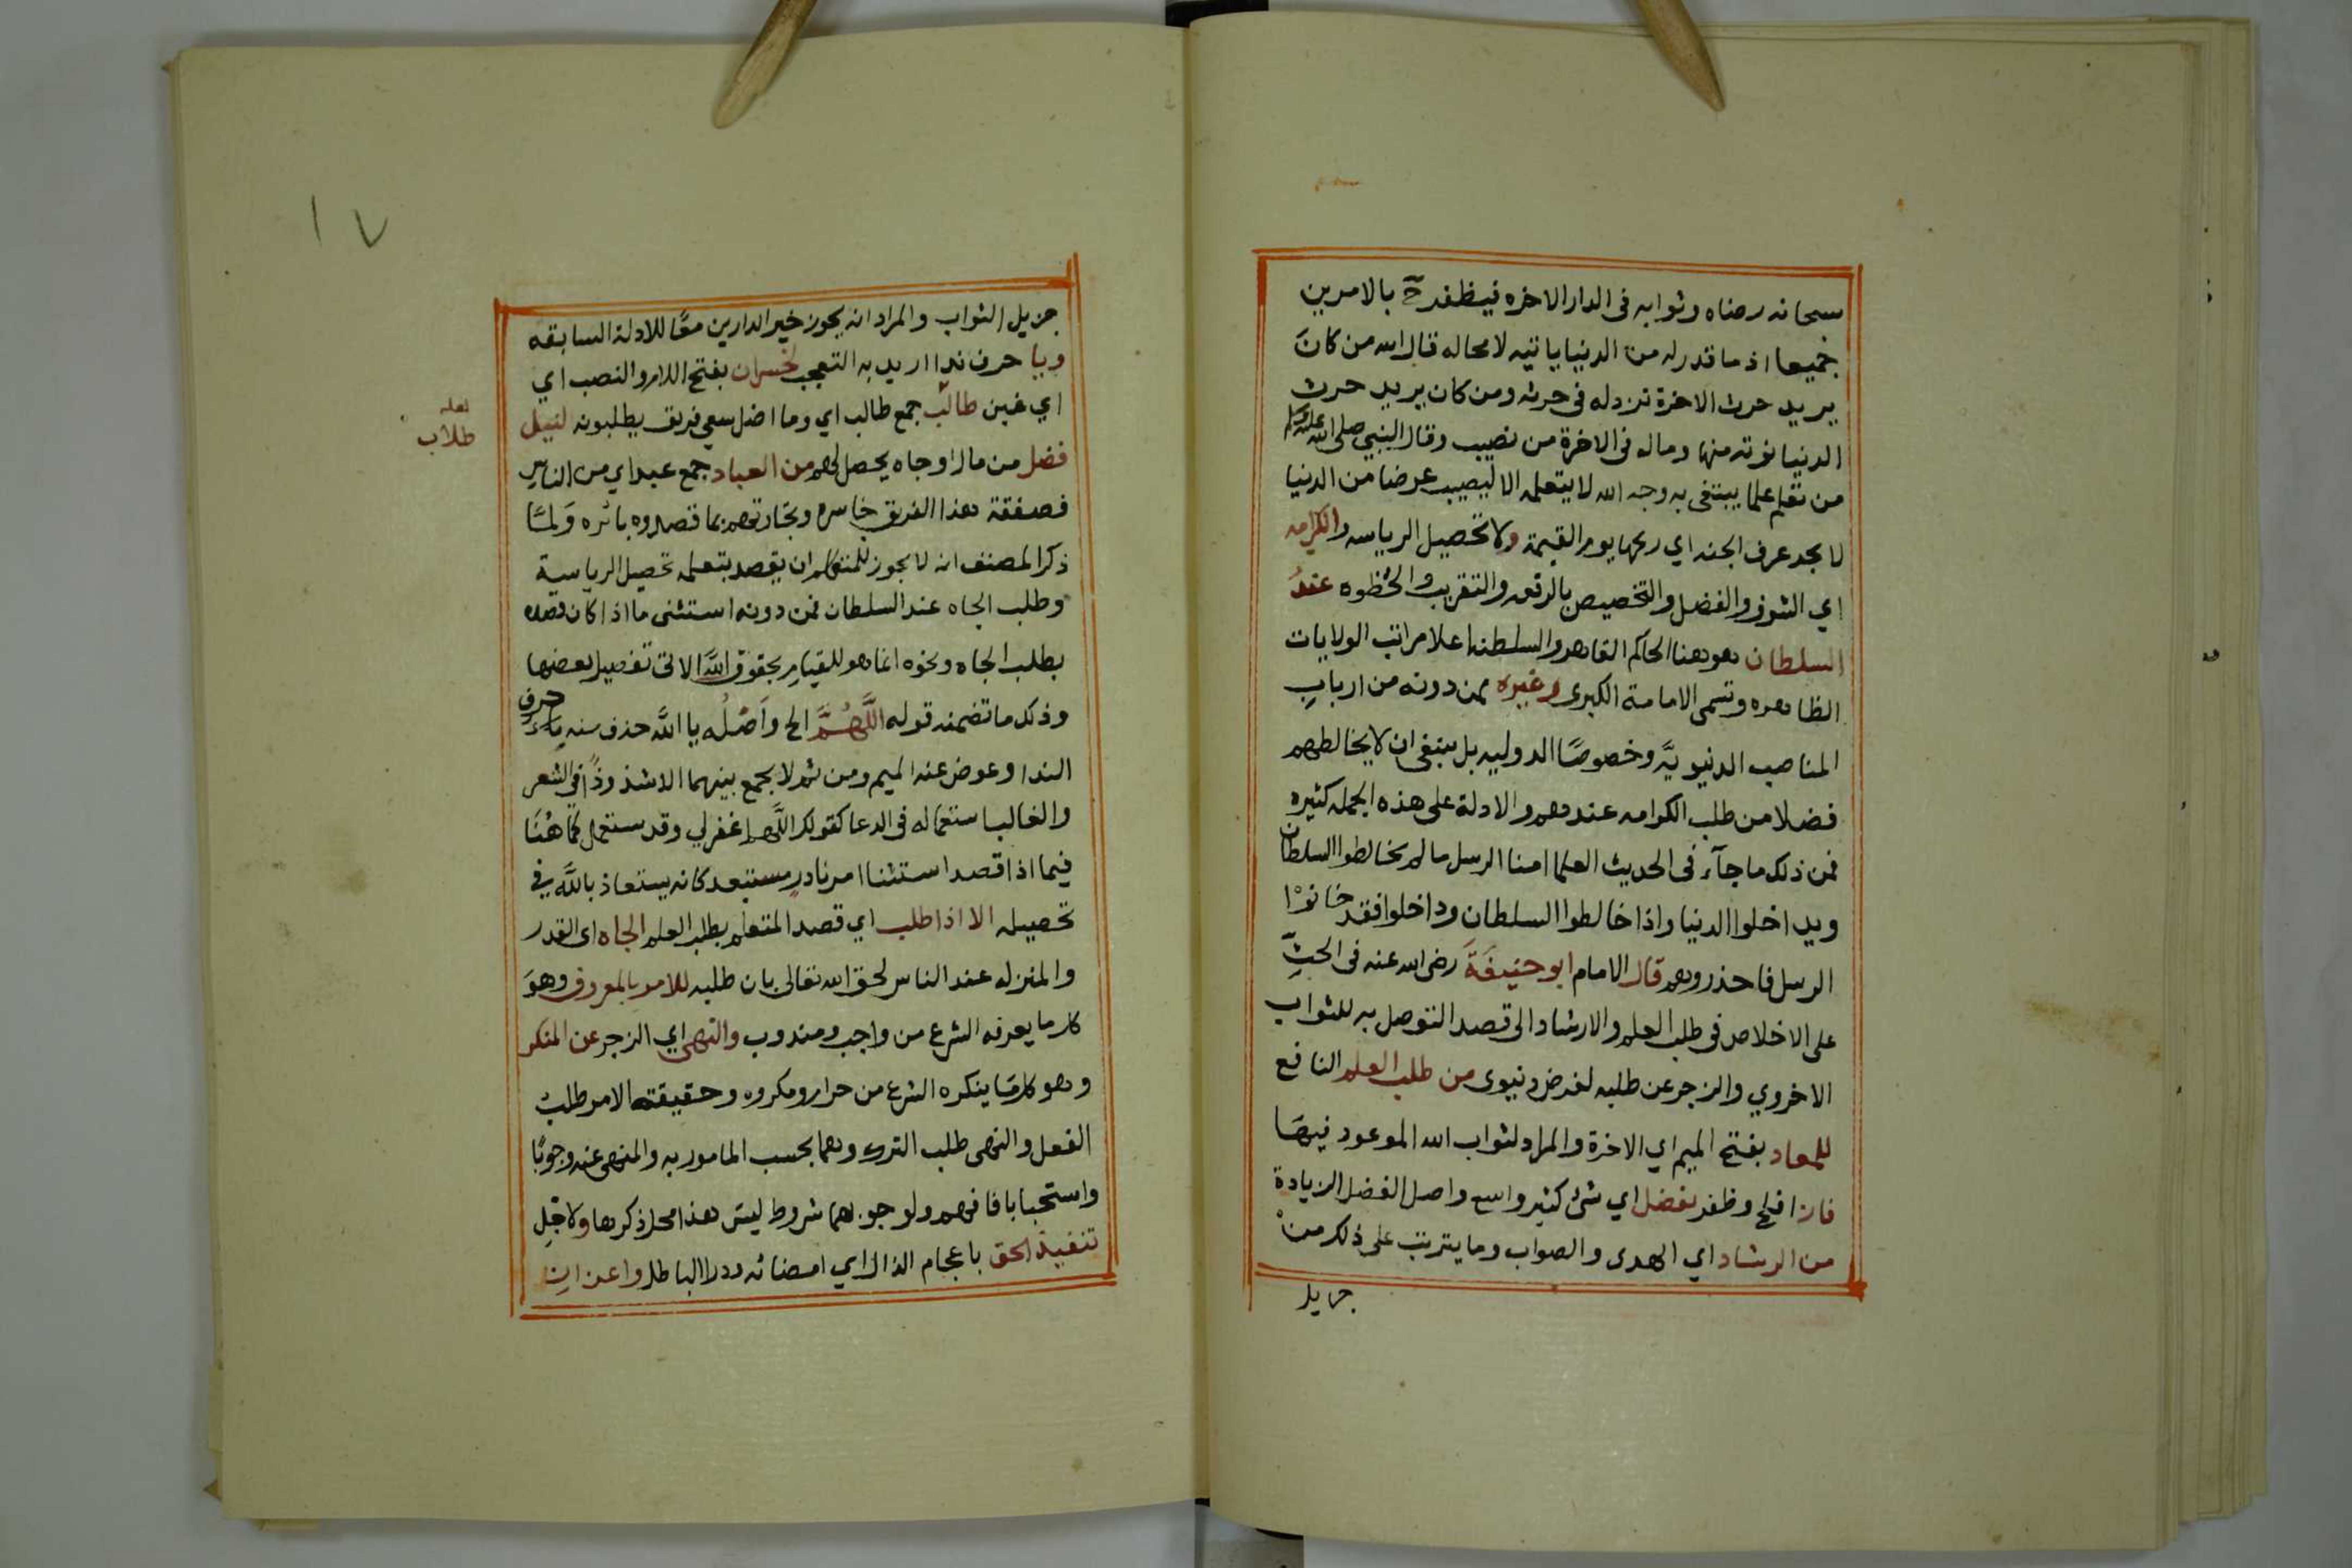 سبحانه رضاه وثوابه فى الدار الاخره فيظفر ح بالامرين
جميعا اذ ما قدر له من الدنيا ياتيه لا محاله قال الله من كان
يريد حرث الاخرة نزد له فى حرثه ومن كان يريد حرث
الدنيا نوته منها وماله فى الاخرة من نصيب وقال النبي صلى الله عليه وسلم
من تعلم علما يبتغى به وجه الله لا يتعلمه الا ليصيب عرضا من الدنيا
لا يجد عرف الجنه اي ريحها يوم القيمة ولا تحصيل الرياسه والكرامه
اي الشرف والفضل والتخصيص بالرفعه والتقريب والحُظوه عندَ
السلطان هو هنا الحاكم القاهر والسلطنه اعلا مراتب الولايات
الظاهره وتسمى الامامة الكبرى وغيره ممن دونه من اربابِ
المناصب الدنيويَّه وخصوصًا الدوليه بل ينبغى ان لا يخالطهم
فضلا من طلب الكرامه عندهم والادلة على هذه الجمله كثيره
فمن ذلك ما جآء فى الحديث العلما امنا الرسل ما لم يخالطوا السلطان
ويداخلوا الدنيا واذا خالطوا السلطان وداخلوا فقد خانوْا
الرسل فاحذروهم قال الامام ابو حنيفَةَ رضى الله عنه فى الحثِّ
على الاخلاص فى طلب العلم والارشاد الى قصد التوصل به للثواب
الاخروي والزجر عن طلبه لغرض دنيوى من طلب العلم النافع
للمعاد بفتح الميم اي الاخرة والمراد لثواب الله الموعود فيهَا
فاز افلح وظفر بفضل اي شئ كثير واسع واصل الفضل الزيادة
من الرشاد اي الهدى والصواب وما يترتب على ذلك منْ
جزيل
١٧
جزيل الثواب والمراد انه يحوز خير الدارين معًا للادلة السابقه
ويا حرف ندا اريد به التعجب لخسران بفتح اللام والنصب اي
اي غبن طالب جمع طالب اي وما اضل سعى فريق يطلبونه لنيل
لعله
طلاب
فضل من مال او جاه يحصل لهم من العباد جمع عبد اي من الناس
فصفقة هذا الفريق خاسره وتجارتهم بما قصدوه بائره وَلمَّا
ذكر المصنف انه لا يجوز للمتعلم ان يقصد بتعلمه تحصيل الرياسة
وطلب الجاه عند السلطان فمن دونه استثنى ما اذا كان قصده
بطلب الجاه ونحوه انما هو للقيامِ بحقوق اللَّه الاتى تفصيل بعضها
وذلك ما تضمنه قوله اللَّهُمَّ الخ وَاصْلُه يا اللَّه حذف منه ياءُ حرف
الندا وعوض عنه الميم ومن ثم لا يجمع بينهما الا شذوذًا فى الشعر
والغالب استعماله فى الدعا كقولك اللَّهم اغفرلي وقد يستعمل كَمَا هُنَا
فيما اذا قصد استثنا امر نادرٍ مستبعد كانه يستعاذ باللَّه في
تحصيله الا اذا طلب اي قصد المتعلم بطلب العلم الجاه اى القدر
والمنزله عند الناس لحق الله تعالى بان طلبه للامر بالمعروف وهوَ
كل ما يعرفه الشرع من واجب ومندوب والنهى اي الزجر عن المنكر
وهو كل مَا ينكره الشرع من حرام ومكروه وحقيقة الامر طلبُ
الفعل والنهى طلب الترك وهما بحسب المامور به والمنهى عنه وجوبًا
واستحبابا فافهم ولوجوبهما شروط ليسَ هذا محل ذكرها ولاجْلِ
تنفيذ الحق باعجام الذال اي امضائه ورد الباطل واعزازِ